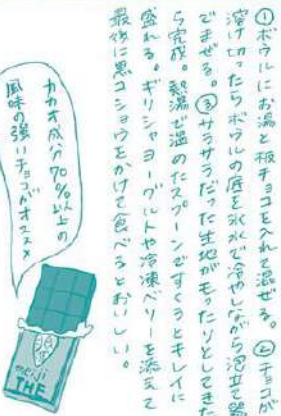 ①ボウルにお湯と板チョコを入れて混ぜる。②チョコが
溶け切ったらボウルの底を氷水で冷やしながら泡立て器
でまぜる。③サラサラだった生地がモッタリとしてきた
ら完成。熱湯で温めたスプーンですくうとキレイに
盛れる。ギリシャヨーグルトや冷凍ベリーを添えて
最後に黒コショウをかけて食べるとおいしい。
カカオ成分70%以上の
風味の強いチョコがオススメ
meiji
THE